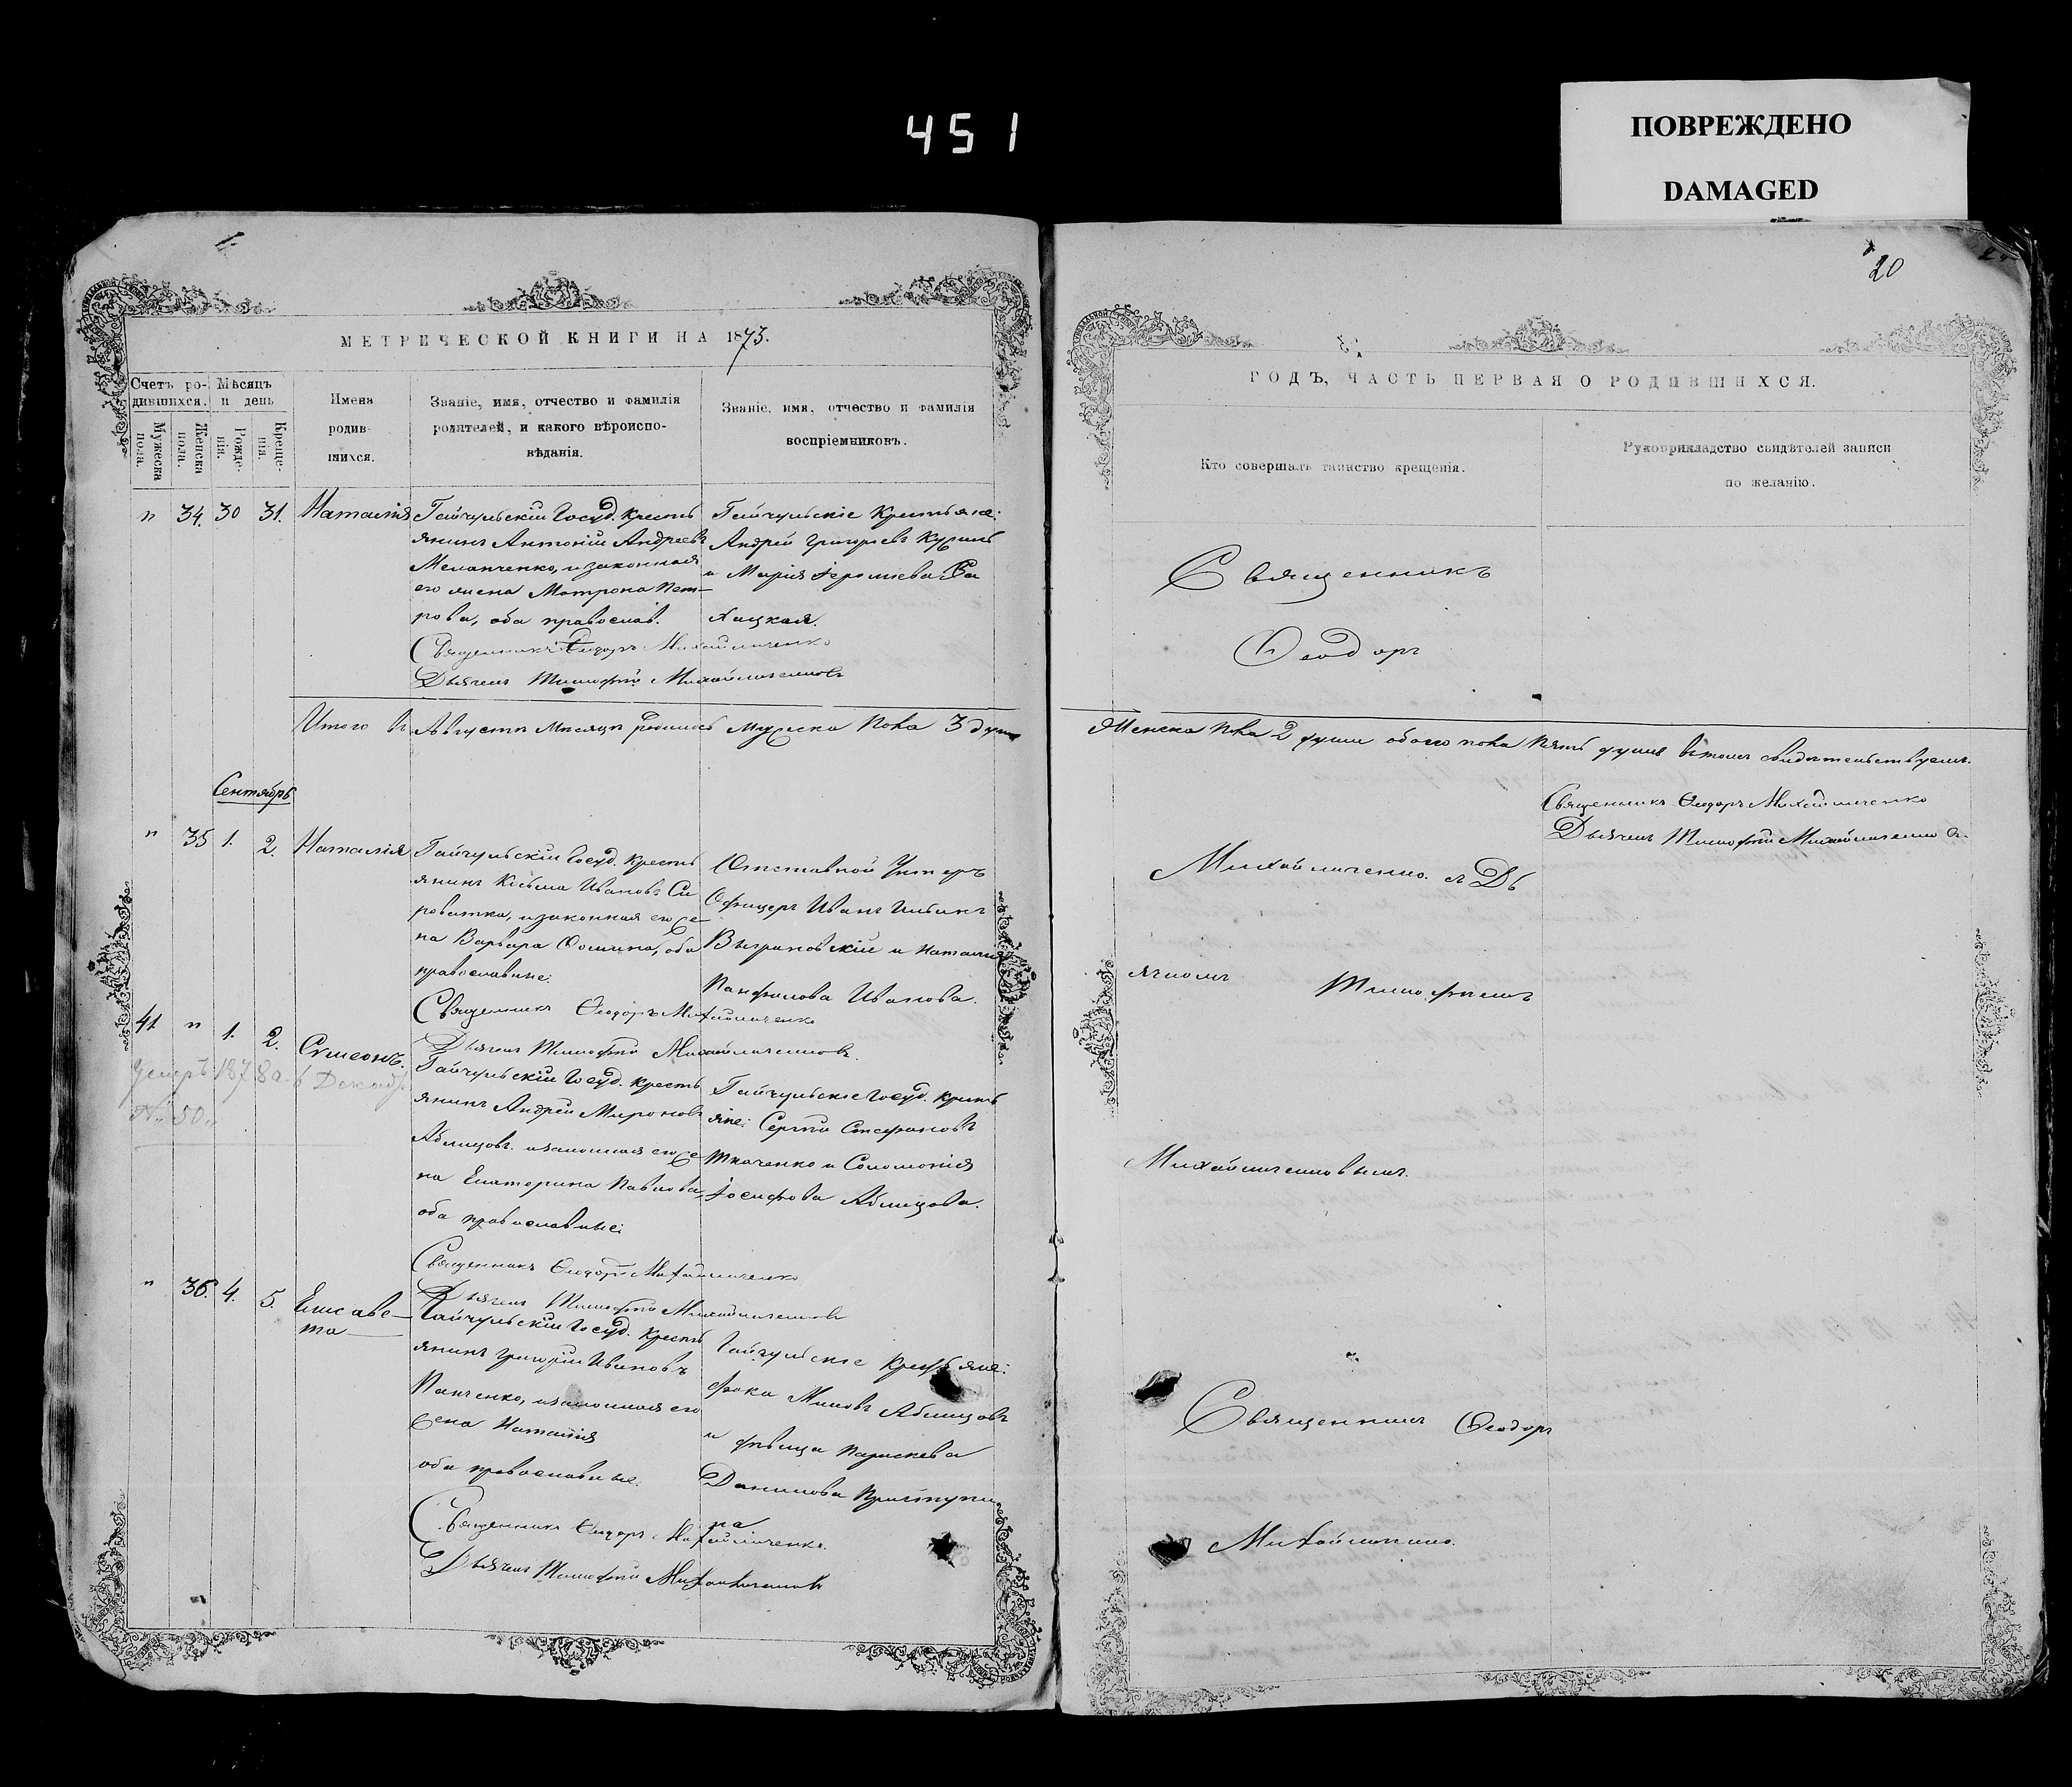 451
ПОВРЕЖДЕНО
DAMAGED
20
МЕТРИЧЕСКОЙ КНИГИ НА 1873.
Счетъ ро-
дившихся.
Мѣсяцъ
и день
Мужеска
пола.
Женска
пола.
Рожде-
нія.
Креще-
нія.
Имена
родив-
шихся.
Званіе, имя, отчество и фамилія
родителей, и какого вѣроиспо-
вѣданія.
Званіе, имя, отчество и фамилія
воспріемниковъ.
" 34. 30 31. Наталія
Гайчульскій Госуд. кресть
янинъ Антоній Андреевъ
Меланченко, и законная
его жена Матрона Пет-
рова, оба православ.
Священникъ Феодоръ Михайличенко
Дьячекъ Тимофей Михайличенковъ
Гайчульскіе Крестьяне:
Андрей Григорьевъ
и Марія
Итого въ Августѣ Мѣсяцѣ родилось мужеска пола 3 душ
Сентябрь
" 35 1. 2. Наталія
Гайчульскій Госуд. кресть
янинъ Козьма Ивановъ Си
роватка, и законная его же
на Варвара Фомина, оба
православные.
Священникъ Феодоръ Михайличенко
Дьячекъ Тимофей Михайличенковъ.
Отставной Унтеръ
Офицеръ Иванъ
и Наталія
Панфилова Иванова.
41 " 1. 2. Сумеонъ.
умеръ 1878 г. 6 Декабр
№ 50.
Гайчульскій Госуд. кресть
янинъ Андрей Мироновъ
Аблицовъ. и законная его же
на Екатерина Павлова,
оба православные:
Священникъ Феодоръ Михайличенко
Дьячекъ Тимофей Михайличенковъ
Гайчульскіе Госуд. кресть
яне: Сергій Стефановъ
Ткаченко и Соломонія
Іосифова Аблицова.
" 36. 4. 5. Елисаве-
та
Гайчульскій Госуд. кресть
янинъ Григорій Ивановъ
Панченко, и законная его
жена Наталія
оба православные.
Священникъ Феодоръ Михайличенко.
Дьячекъ Тимофей Михайличенковъ
Гайчульскіе Крестьяне:
Фока Аблицовъ
и дѣвица Параскева
Данилова
на
ГОДЪ, ЧАСТЬ ПЕРВАЯ О РОДИВШИХСЯ.
Кто совершалъ таинство крещенія.
Рукоприкладство свидѣтелей записи
по желанію.
Священникъ
Феодоръ
Женска пола 2 души обоего пола пять душъ въ томъ свидѣтельствуемъ.
Священникъ Феодоръ Михайличенко
Дьячекъ Тимофей Михайличенковъ.
Михайличенко. съ Дь
ячкомъ Тимофеемъ
Михайличенковымъ.
Священникъ Феодоръ
Михайличенко.